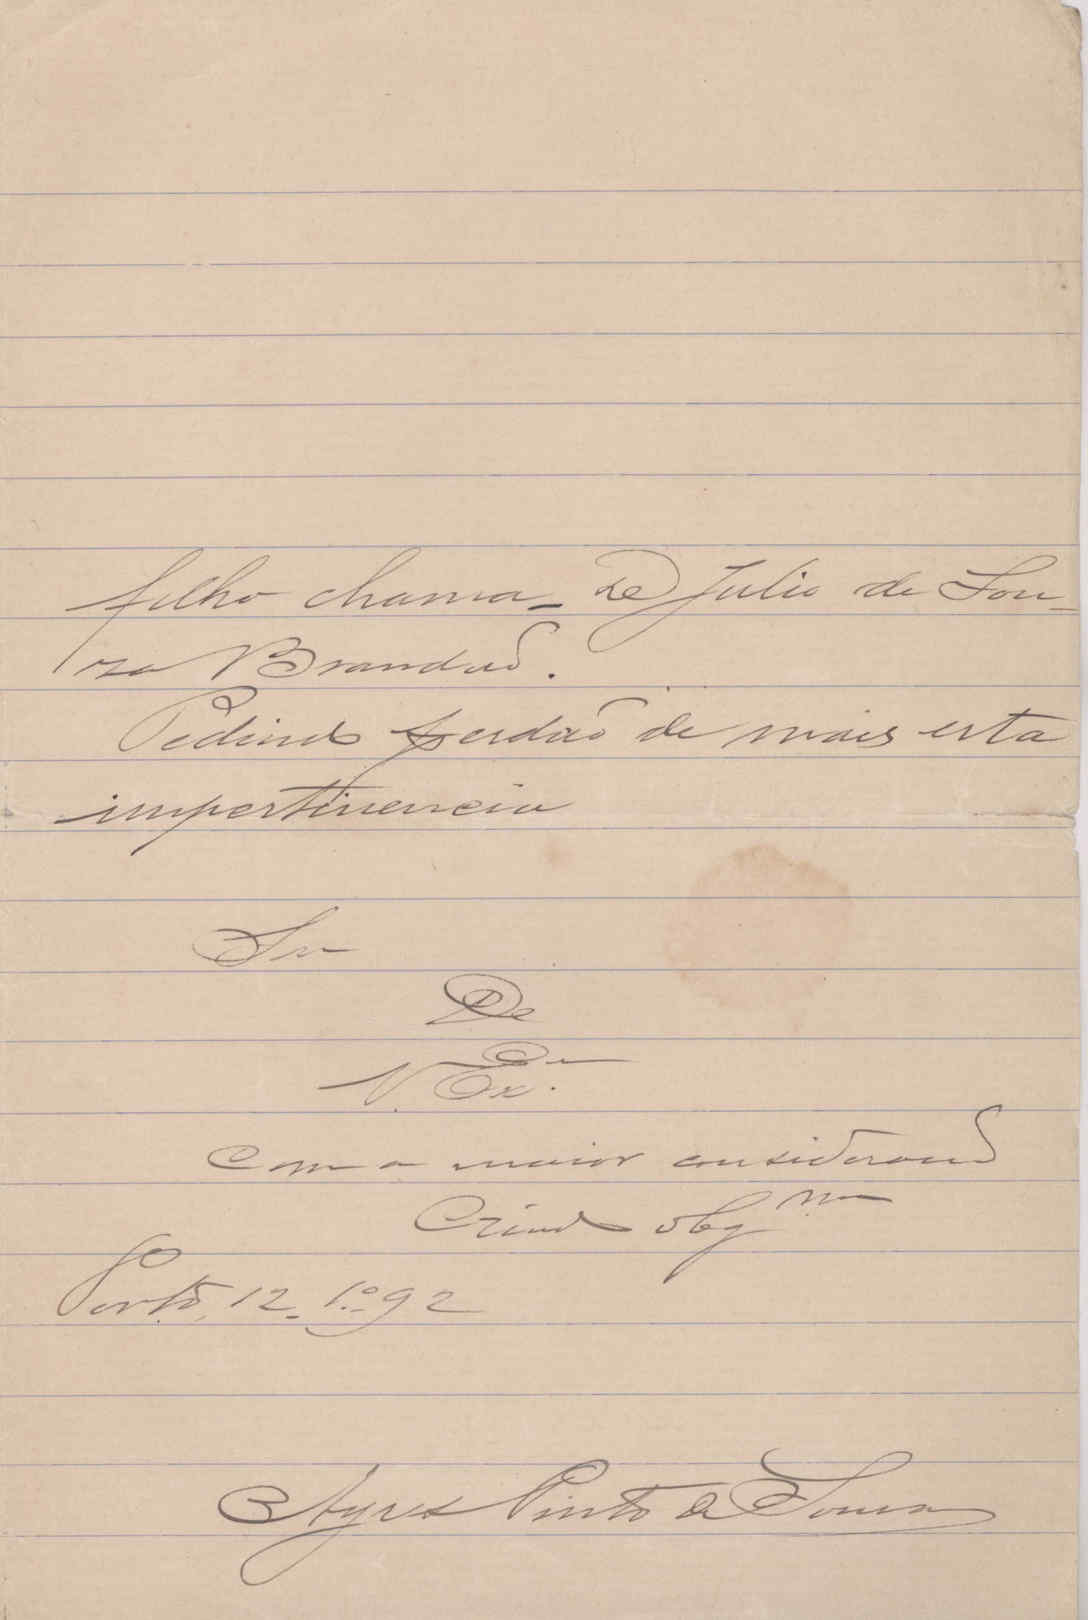 filho chama-se Julio de Sou-
za Brandão.
Pedindo perdão de mais esta
impertinencia
Sou
De
V. Ex.ª
Com a maior consideração
Criado obg.mo
Porto, 12-1º-92
Ayres Pinto de Sousa